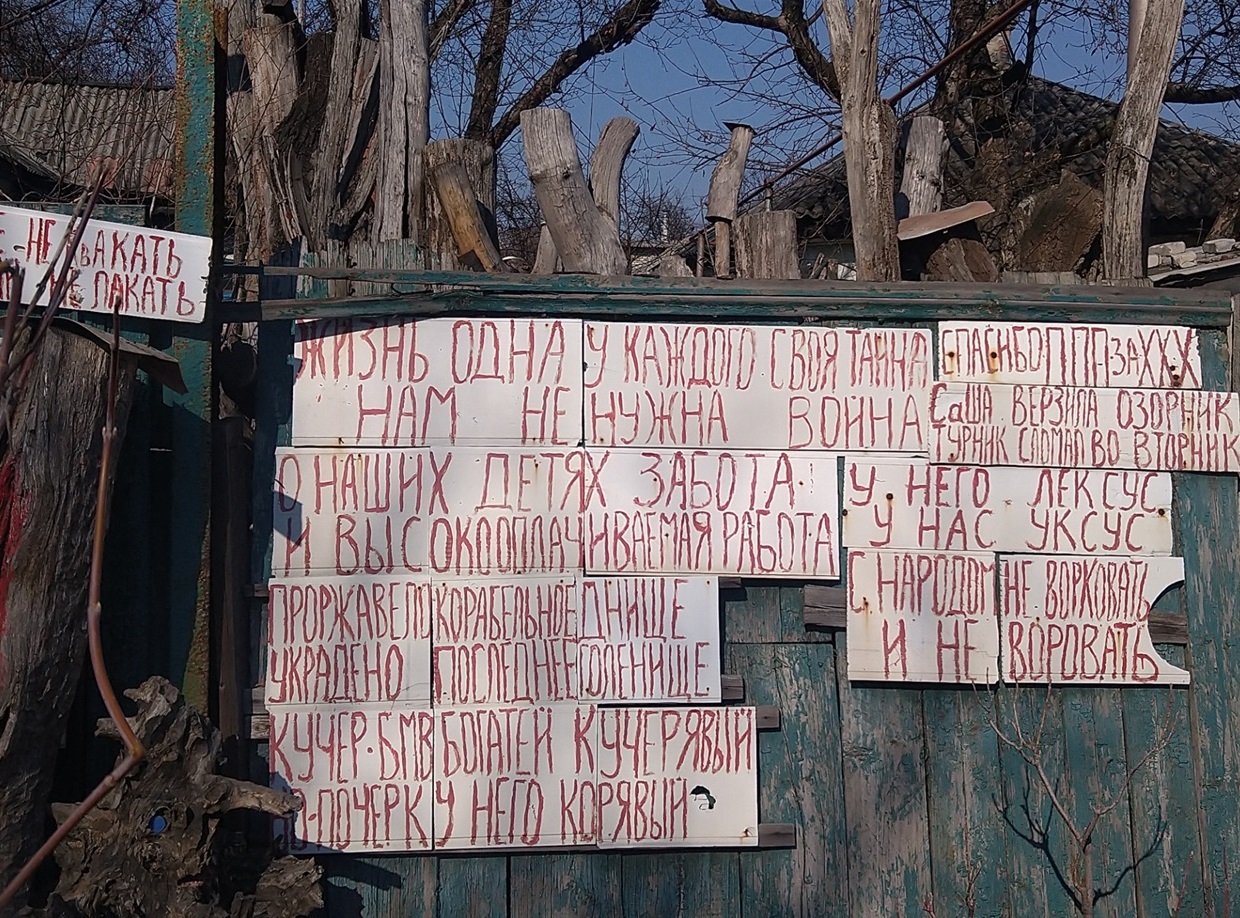 -НЕ КВАКАТЬ
НЕ ЛАКАТЬ
ЖИЗНЬ ОДНА У КАЖДОГО СВОЯ ТАЙНА
НАМ НЕ НУЖНА ВОЙНА
О НАШИХ ДЕТЯХ ЗАБОТА!
И ВЫСОКООПЛАЧИВАЕМАЯ РАБОТА
ПРОРЖАВЕЛО КОРАБЕЛЬНОЕ ДНИЩЕ
УКРАДЕНО ПОСЛЕДНЕЕ ГОЛЕНИЩЕ
КУЧЕР·БМВ БОГАТЕЙ КУЧЕРЯВЫЙ
НО-ПОЧЕРК У НЕГО КОРЯВЫЙ
СПАСИБО ППП-ЗА ХХХ
СаША ВЕРЗИЛА ОЗОРНИК
ТУРНИК СЛОМАЛ ВО ВТОРНИК
У НЕГО ЛЕКСУС
У НАС УКСУС
С НАРОДОМ НЕ ВОРКОВАТЬ
И НЕ ВОРОВАТЬ